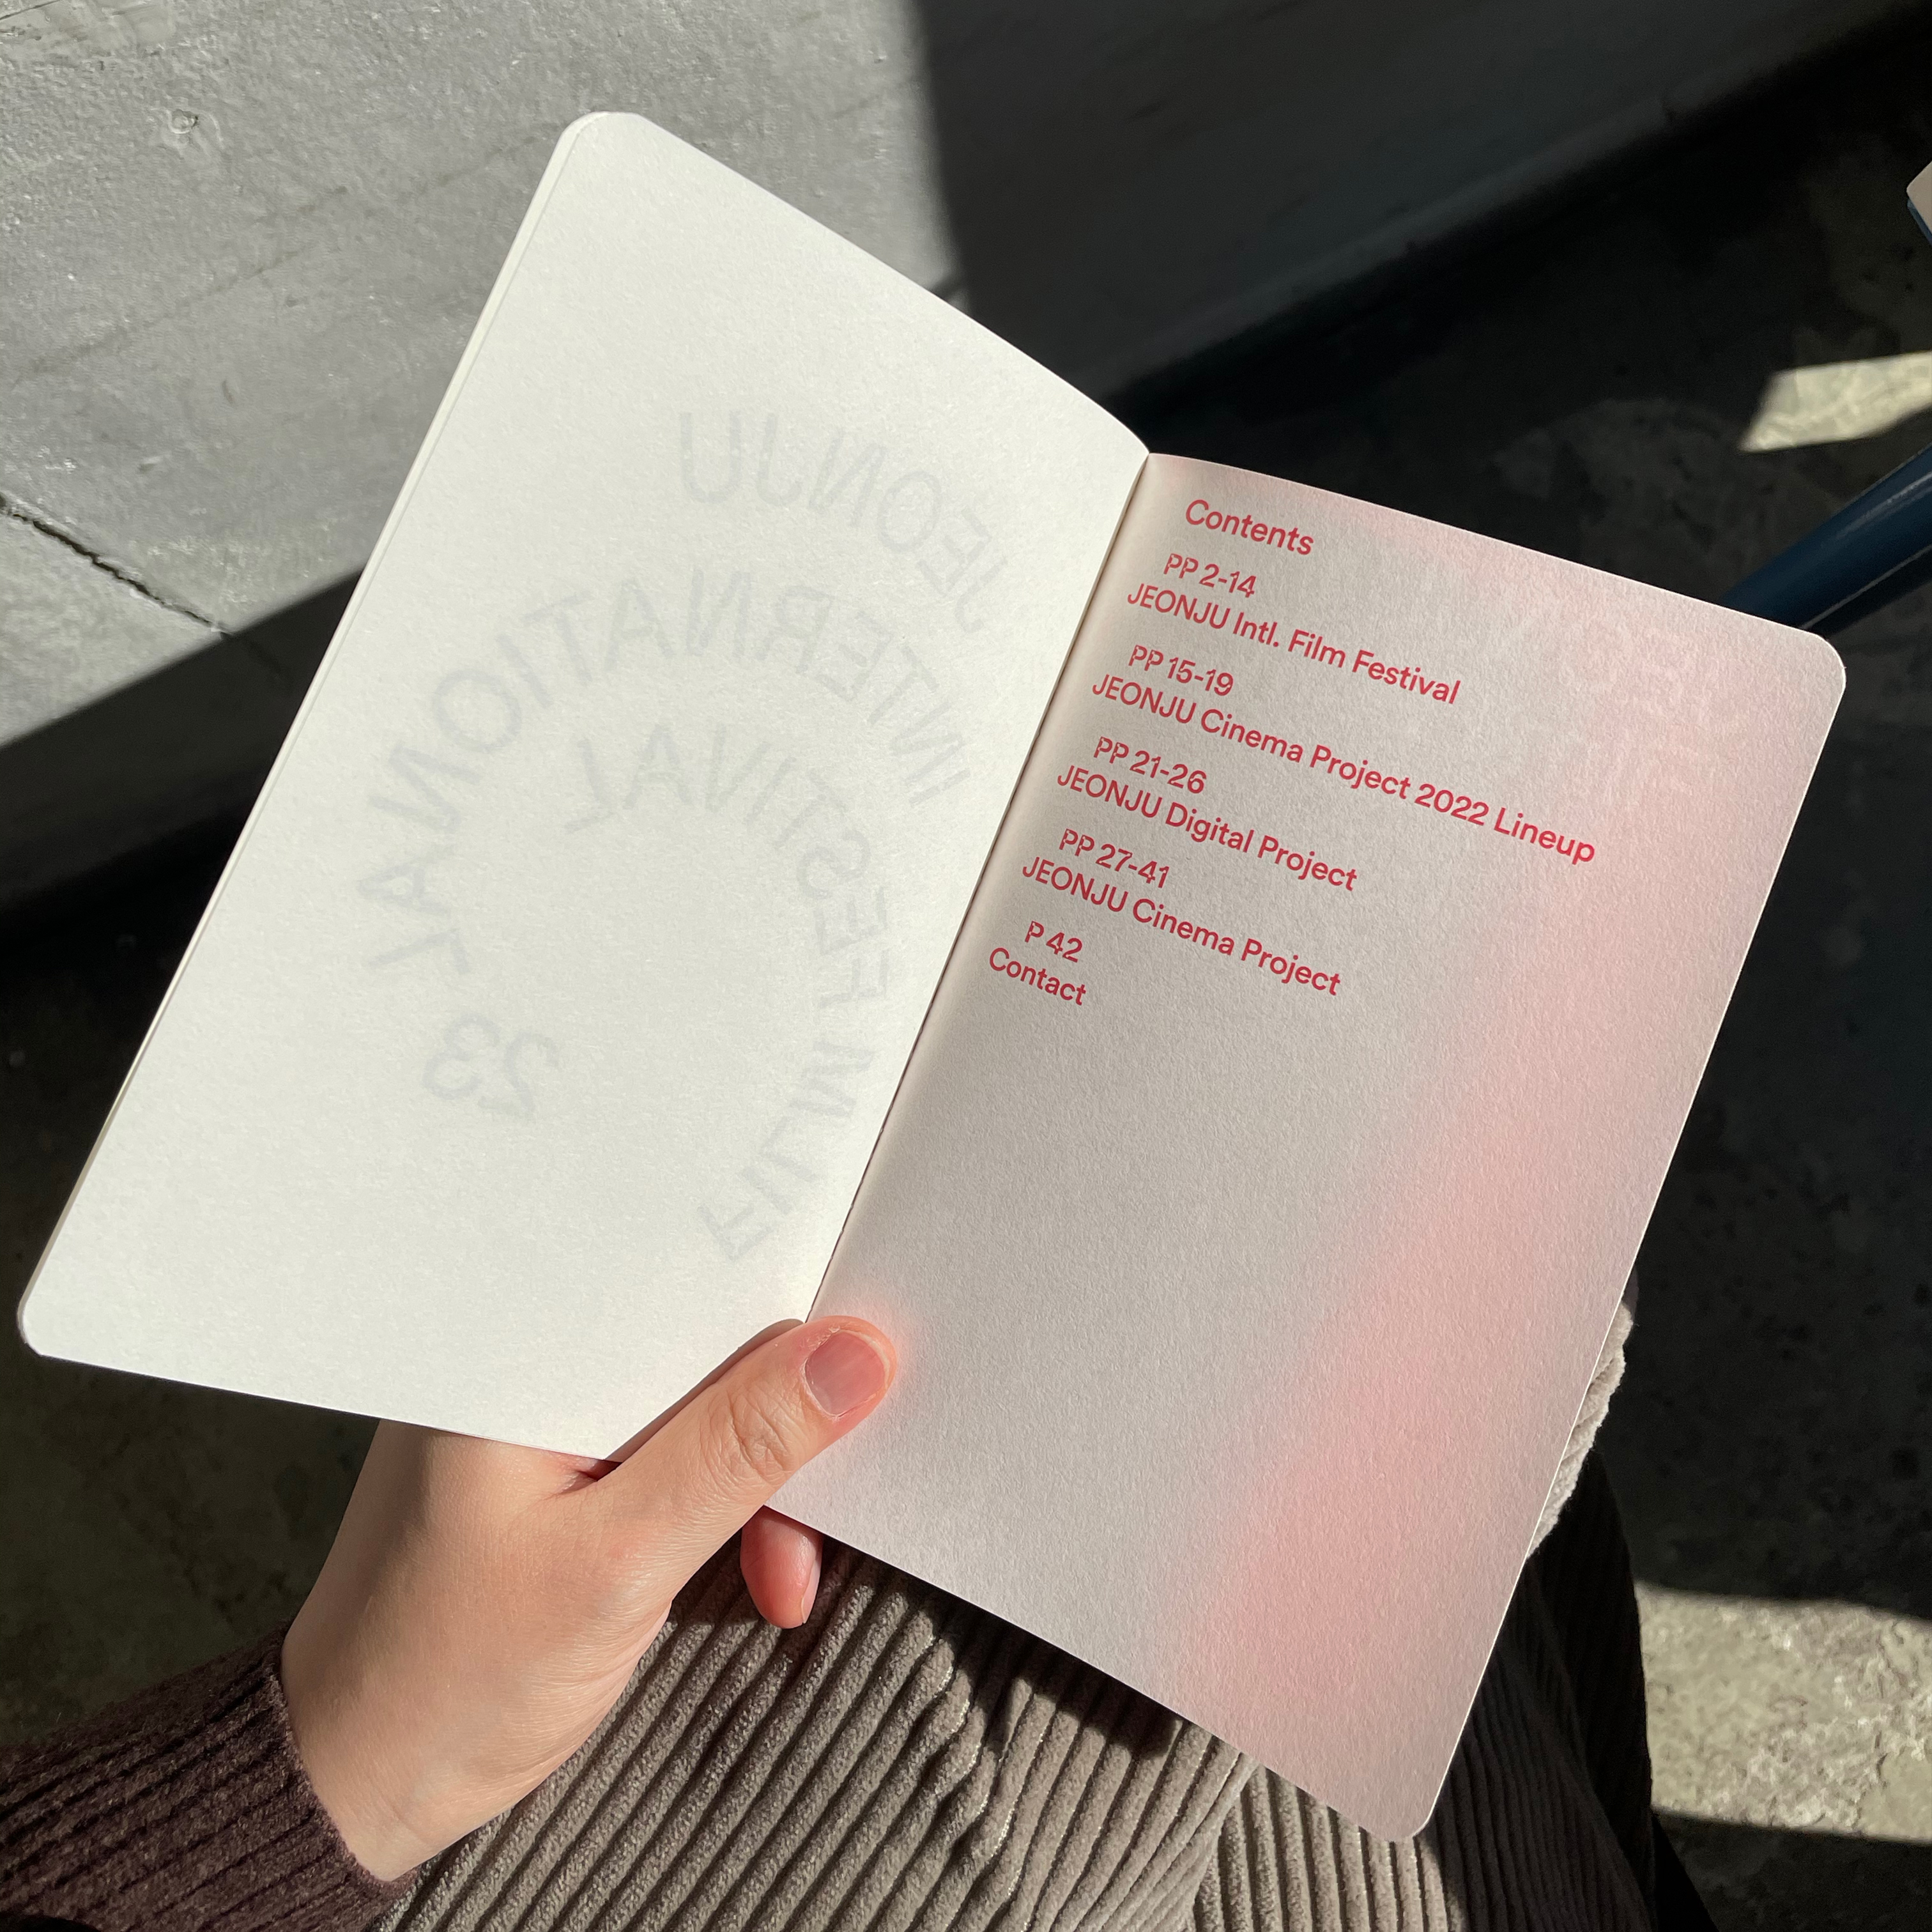 JEONJU
INTERNATIONAL
FILM FESTIVAL
23
Contents
PP 2-14
JEONJU Intl. Film Festival
PP 15-19
JEONJU Cinema Project 2022 Lineup
PP 21-26
JEONJU Digital Project
PP 27-41
JEONJU Cinema Project
P 42
Contact